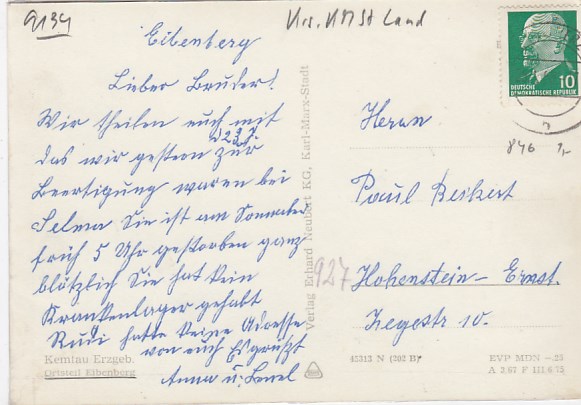 9134
Krs. KMSt Land
Eibenberg
Lieber Bruder!
Wir theilen euch mit
das wir gestern zur
Beertigung waren bei
Selma Sie ist am Sonnabe
früh 5 Uhr gestorben ganz
blötzlich Sie hat kein
Krankenlager gehabt
Rudi hatte keine Adresse
von euch Es grüßt
Anna u.
Kemtau Erzgeb.
Ortsteil Eibenberg
Verlag Erhard Neubert KG, Karl-Marx-Stadt
927
10
DEUTSCHE
DEMOKRATISCHE REPUBLIK
846 1,-
Herrn
Paul Reikert
Hohenstein-Ernst.
Zegestr 10.
45312 N (202 B)
EVP MDN -.25
A 2/67 F III/6/75